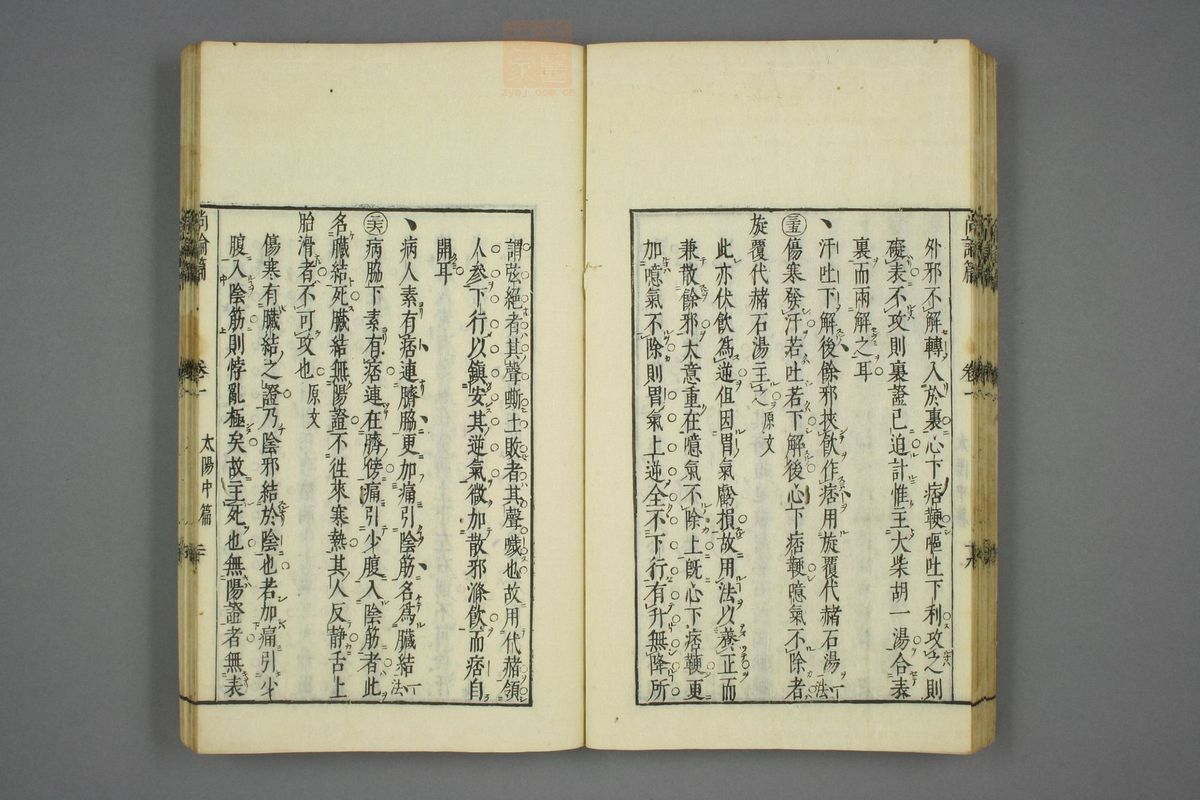 外邪不解轉入於裏心下痞鞕嘔吐下利攻之則
礙表不攻則裏證已迫計惟主大柴胡一湯合表
裏而兩解之耳
汗吐下解後餘邪挾飲作痞用旋覆代赭石湯一法
傷寒發汗若吐若下解後心下痞鞕噫氣不除者
旋覆代赭石湯主之原文
此亦伏飲為逆但因胃氣虧損故用法以養正而
兼散餘邪大意重在噫氣不除上旣心下痞鞕更
加噫氣不除則胃氣上逆全不下行有升無降所
謂弦絕者其聲嘶土敗者其聲噦也故用代赭領
人參下行以鎮安其逆氣微加散邪滌飲而痞自
開耳
病人素有痞連臍脇更加痛引陰筋名為臟結一法
病脇下素有痞連在臍傍痛引少腹入陰筋者此
名臟結死臟結無陽證不徃來寒熱其人反静舌上
胎滑者不可攻也原文
傷寒有臟結之證乃陰邪結於陰也若加痛引少
腹入陰筋則悖亂極矣故主死也無陽證者無表
尚論篇 卷一 太陽中篇
zysj.com.cn